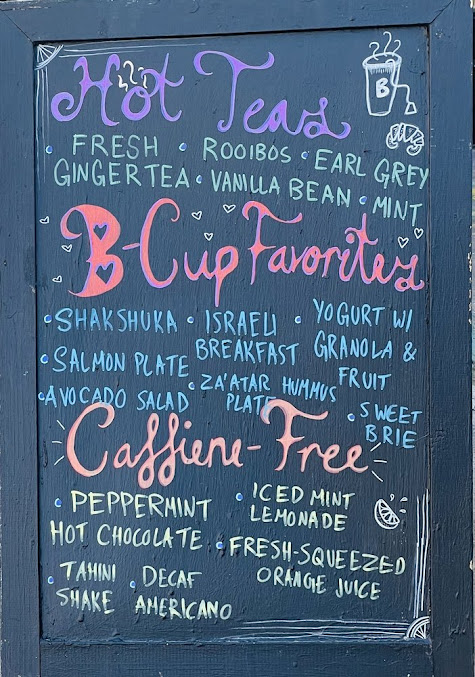 Hot Teas
B
• FRESH • ROOIBOS • EARL GREY
GINGER TEA • VANILLA BEAN • MINT
B-Cup Favorites
• SHAKSHUKA • ISRAELI • YOGURT W/
BREAKFAST GRANOLA &
• SALMON PLATE FRUIT
• AVOCADO SALAD • ZA'ATAR HUMMUS
PLATE • SWEET
BRIE
Caffiene-Free
• PEPPERMINT • ICED MINT
HOT CHOCOLATE LEMONADE
• FRESH-SQUEEZED
ORANGE JUICE
• TAHINI • DECAF
SHAKE AMERICANO